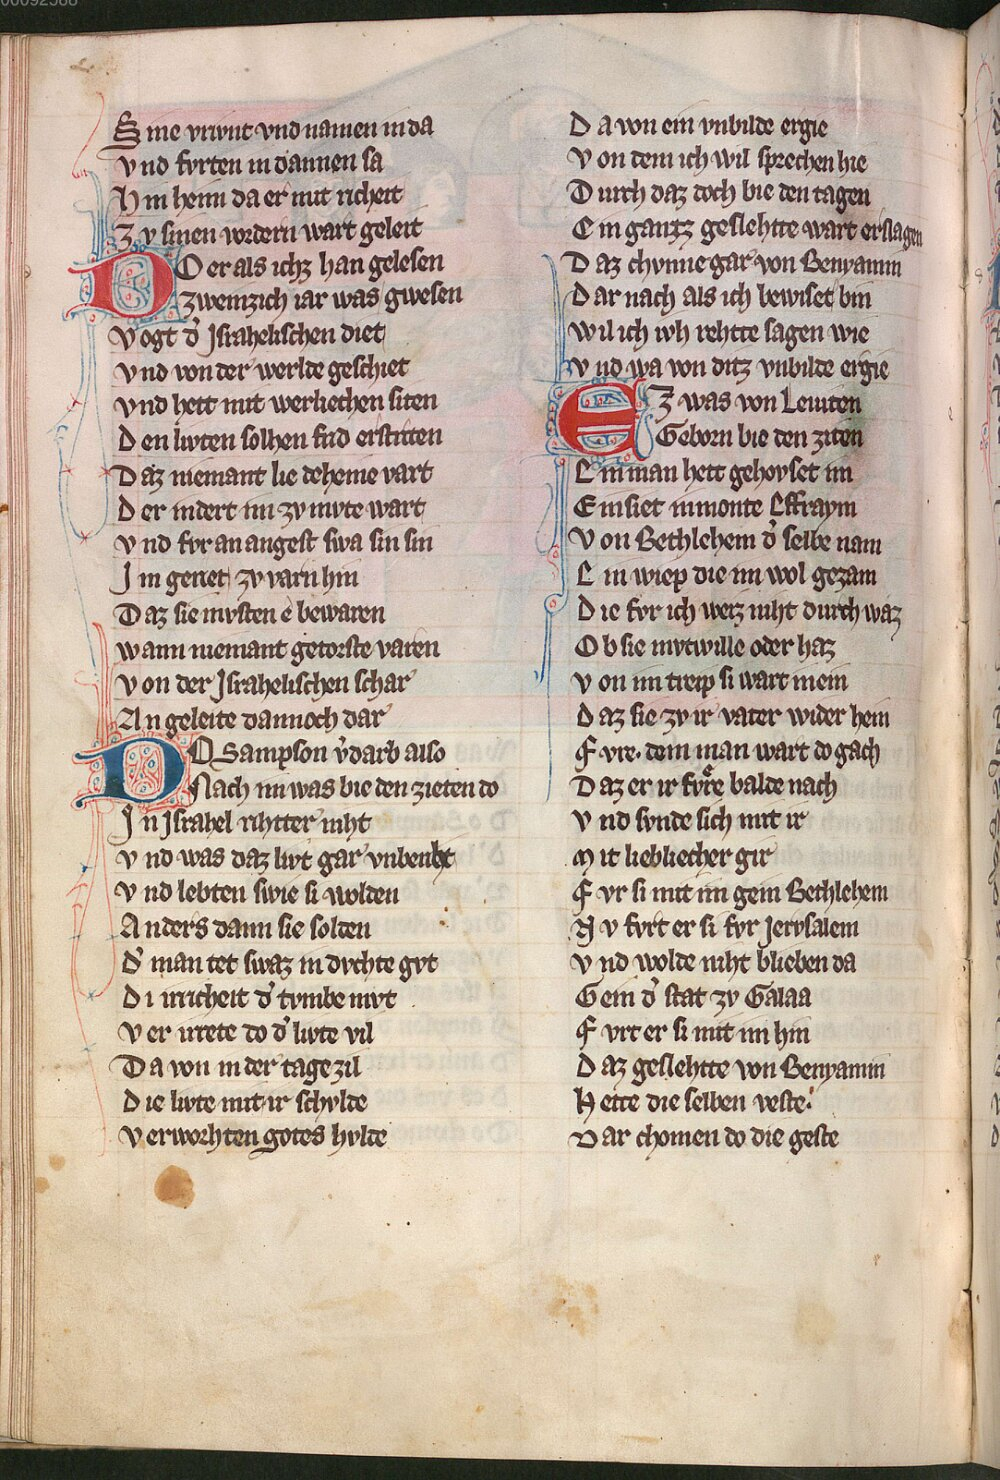 Sine vriunt vnd namen in da
Vnd fvrten in dannen sa
Hin heim da er mit richeit
Zv sinen vordern wart geleit
DO er als ichz han gelesen
Zweinzich iar was gwesen
Vogt d' Israhelischen diet
Vnd von der werlde geschiet
Vnd hett mit werliechen siten
Den livten solhen frid erstriten
Daz niemant lie deheine vart
Der indert im zv mvte wart
Vnd fvr an angest swa sin sin
Im geriet zv varn hin
Daz sie mvsten e bewaren
Wann niemant getorste varen
Von der Israhelischen schar
An geleite dannoch dar
DO Sampson v'darb also
Nach im was bie den zieten do
In Israhel rihtter niht
Vnd was daz livt gar vnberiht
Vnd lebten swie si wolden
Anders dann sie solden
D' man tet swaz in dvchte gvt
Di irricheit d' tvmbe mvt
Ver irrete do d' livte vil
Da von in der tage zil
Die livte mit ir schvlde
Verworhten gotes hvlde
Da von ein vnbilde ergie
Von dem ich wil sprechen hie
Durch daz doch bie den tagen
Ein gantz geslehtte wart erslagen
Daz chvnne gar von Benyamin
Dar nach als ich bewiset bin
Wil ich ivh rehtte sagen wie
Vnd wa von ditz vnbilde ergie
EZ was von Leuiten
Geborn bie den ziten
Ein man hett gehovset im
Ein siet in monte Effraym
Von Bethlehem d' selbe nam
Ein wiep die im wol gezam
Die fvr ich weiz niht durch waz
Ob sie mvtwille oder haz
Von im treip si wart mein
Daz sie zv ir vater wider hein
Fvre. dem man wart do gach
Daz er ir fvre balde nach
Vnd svnde sich mit ir
Mit liebliecher gir
Fvr si mit im gein Bethlehem
Nv fvrt er si fvr Jervsalem
Vnd wolde niht blieben da
Gein d' stat zv Galaa
Fvrt er si mit im hin
Daz geslehtte von Benyamin
Hette die selben veste.
Dar chomen do die geste